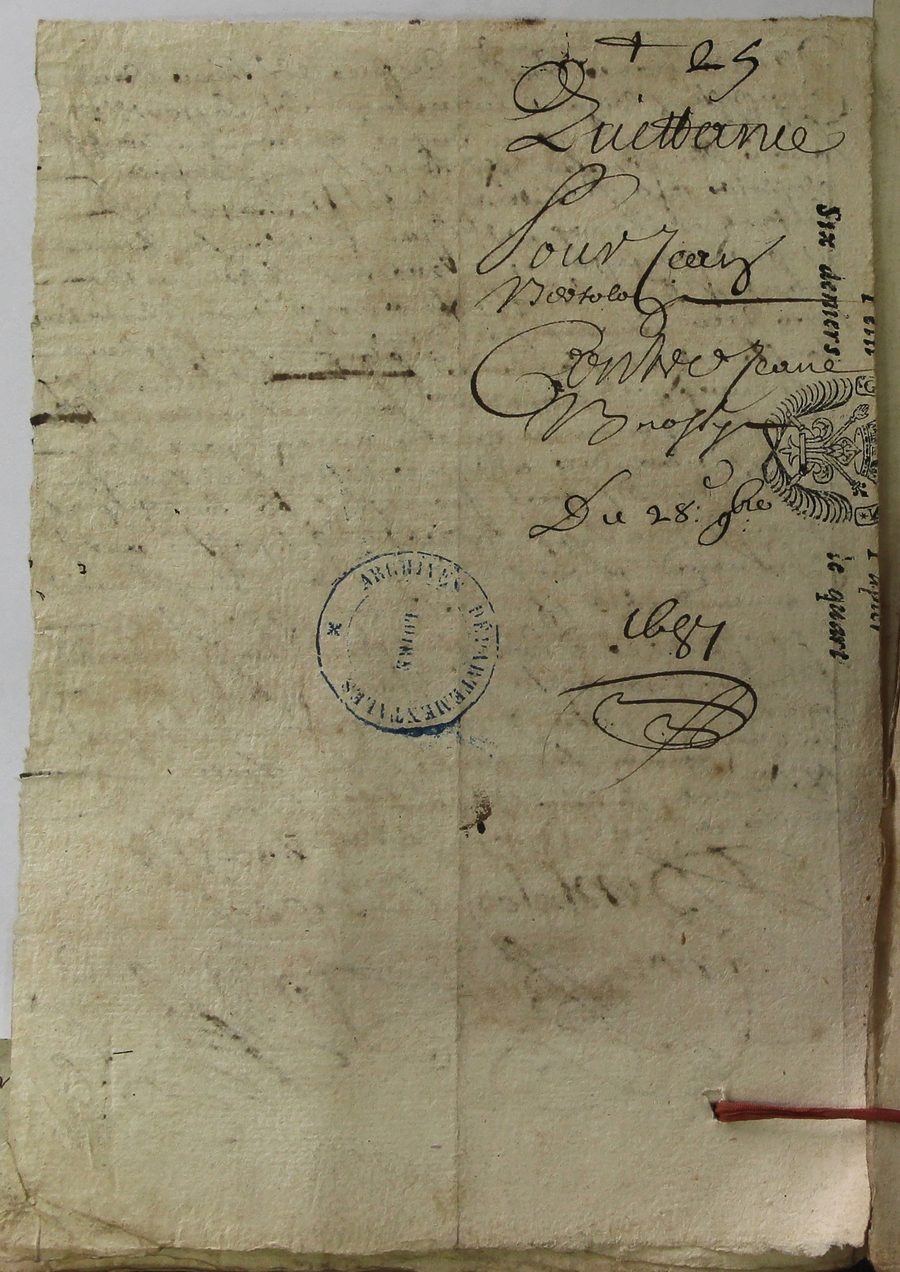 + 25
Quittance
Pour Jean
Bertolo
Contre Jeane
Brossy
Du 28.e 9bre
1687
Six deniers
le quart
ARCHIVES DÉPARTEMENTALES
LOIRE